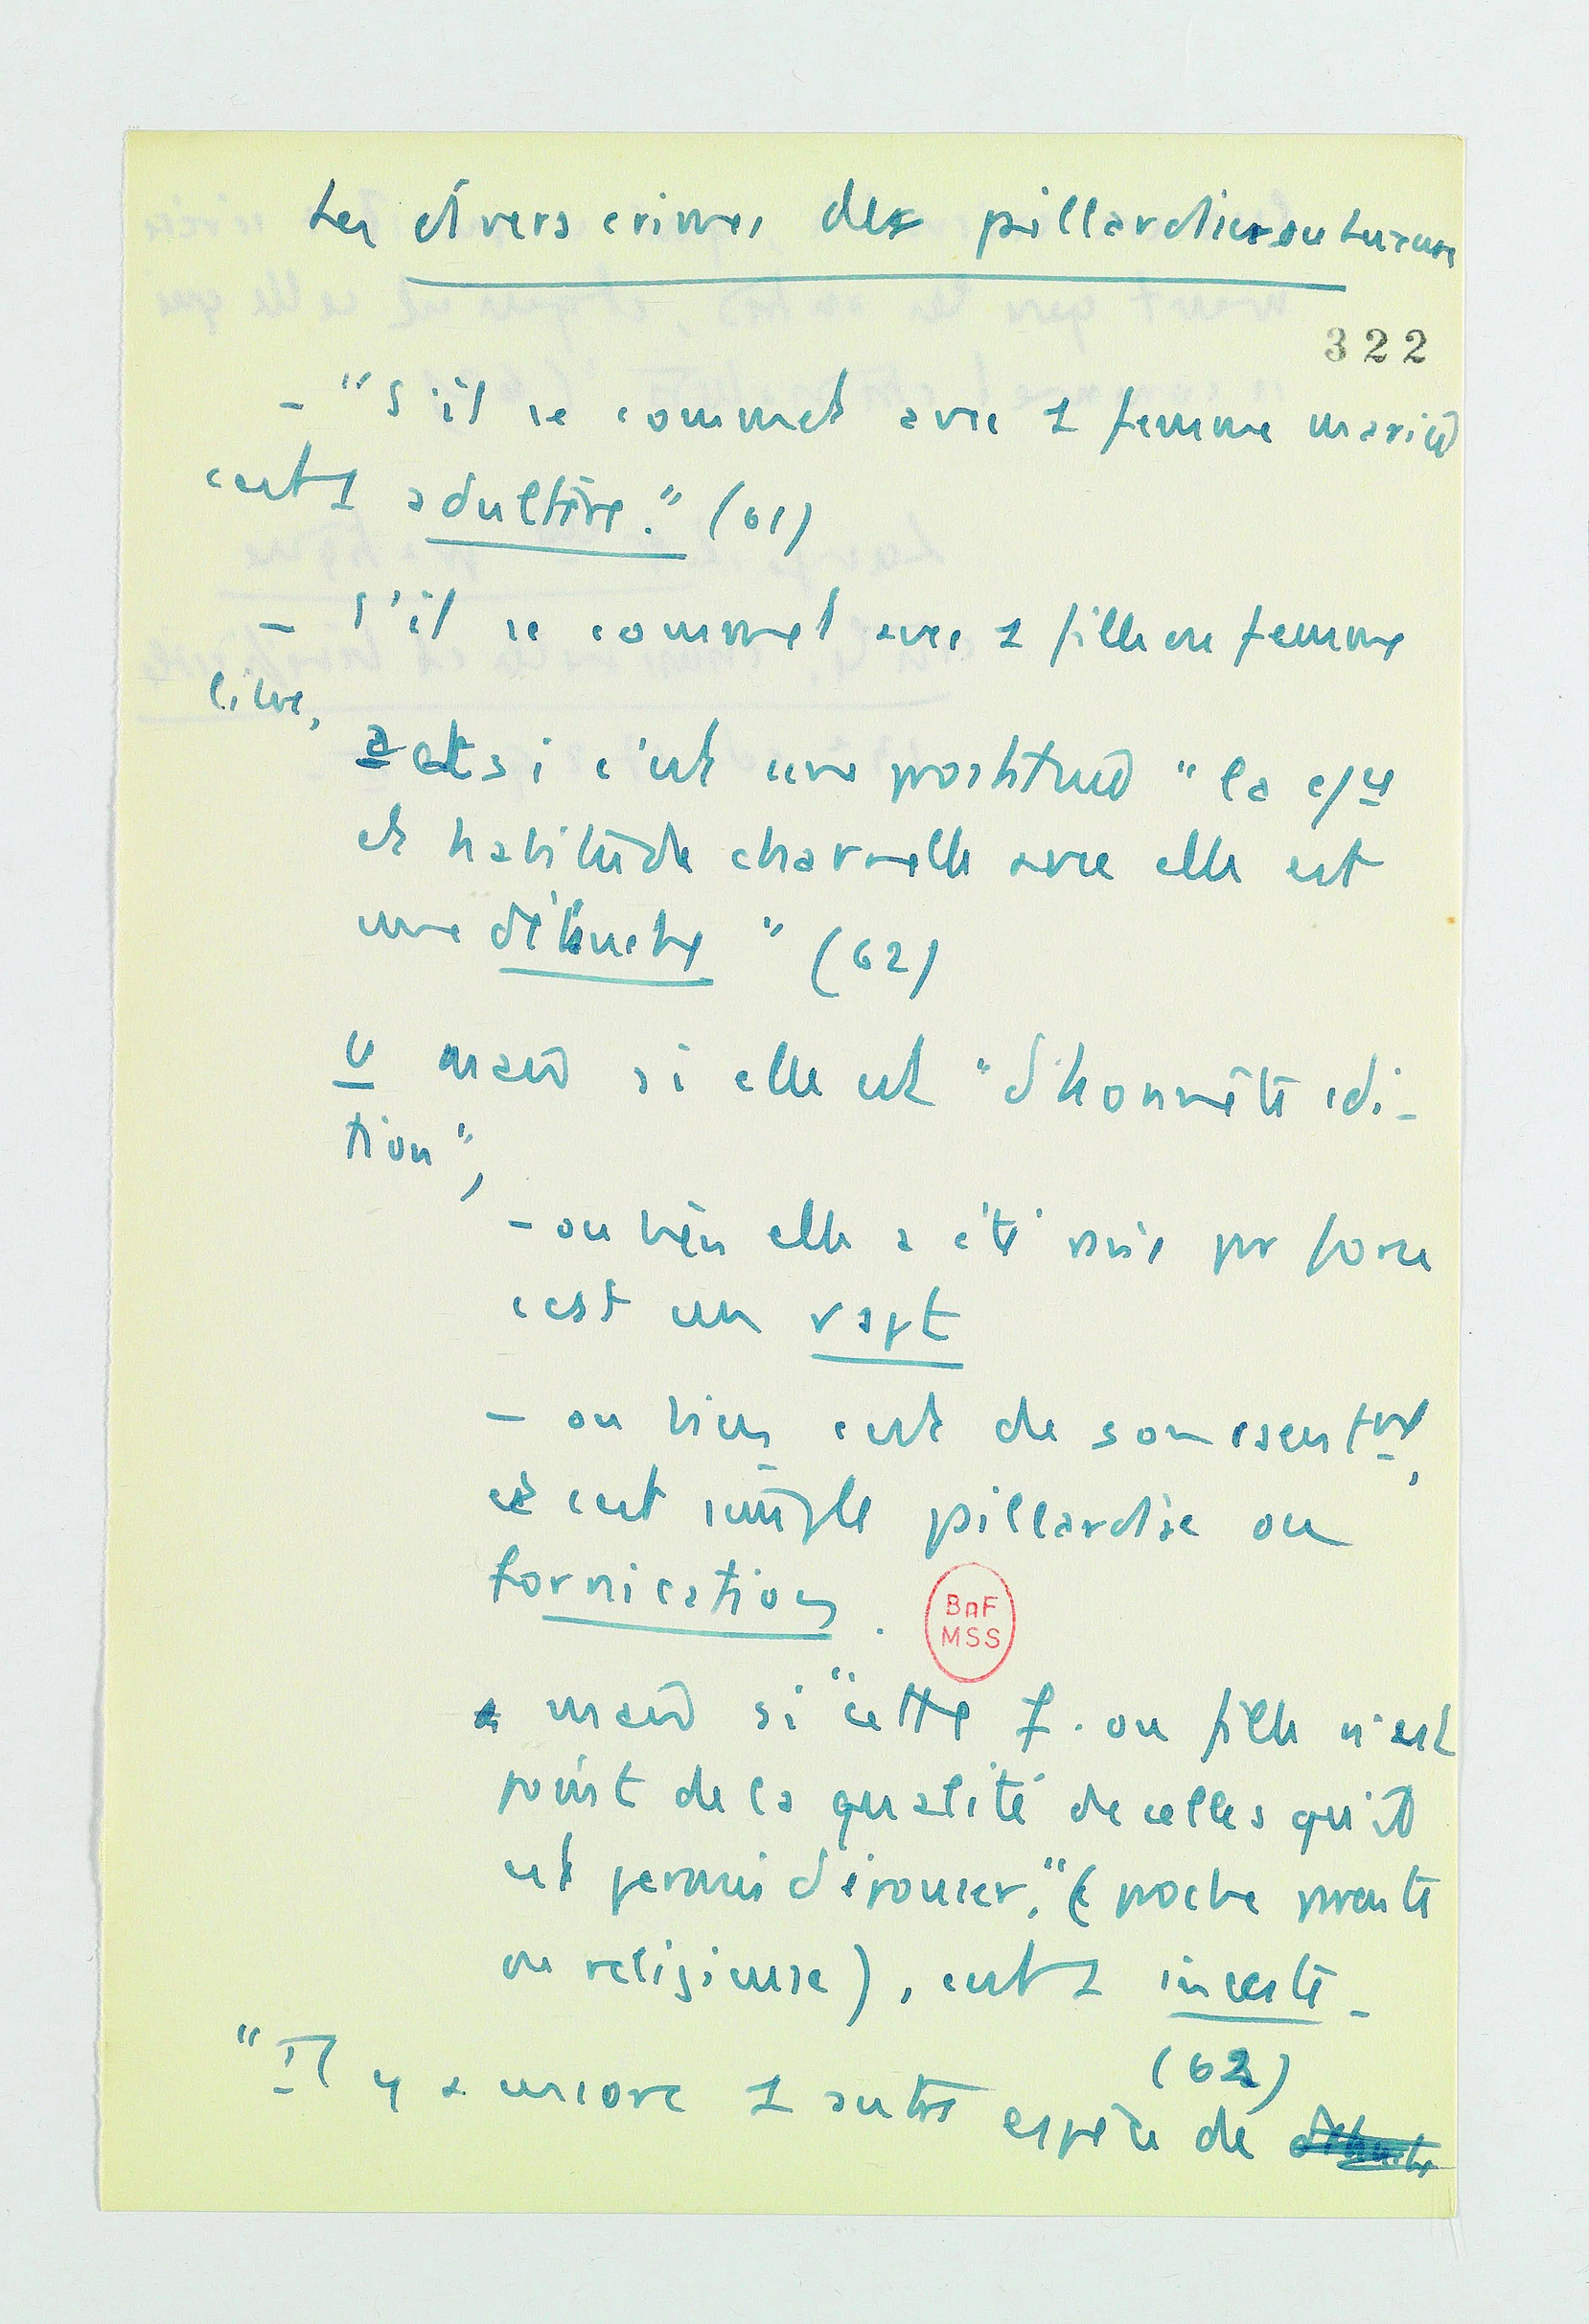 Les divers crimes de pillardise ou luxure
322
- "S'il se commet avec 1 femme mariée
c'est 1 adultère." (61)
- S'il se commet avec 1 fille ou femme
libre,
a et si c'est une prostituée "la
et habitude charnelle avec elle est
une débauche" (62)
b mais si elle est "d'honnête cdi-
tion",
- ou bien elle a été prise par force
c'est un rapt
- ou bien c'est de son consentmt,
et c'est simple pillardise ou
fornication.
BnF
MSS
mais si "cette f. ou fille n'est
point de la qualité de celles qu'il
est permis d'épouser," (proche parente
ou religieuse), c'est 1 inceste -
(62)
"Il y a encore 1 autre espèce de débauche